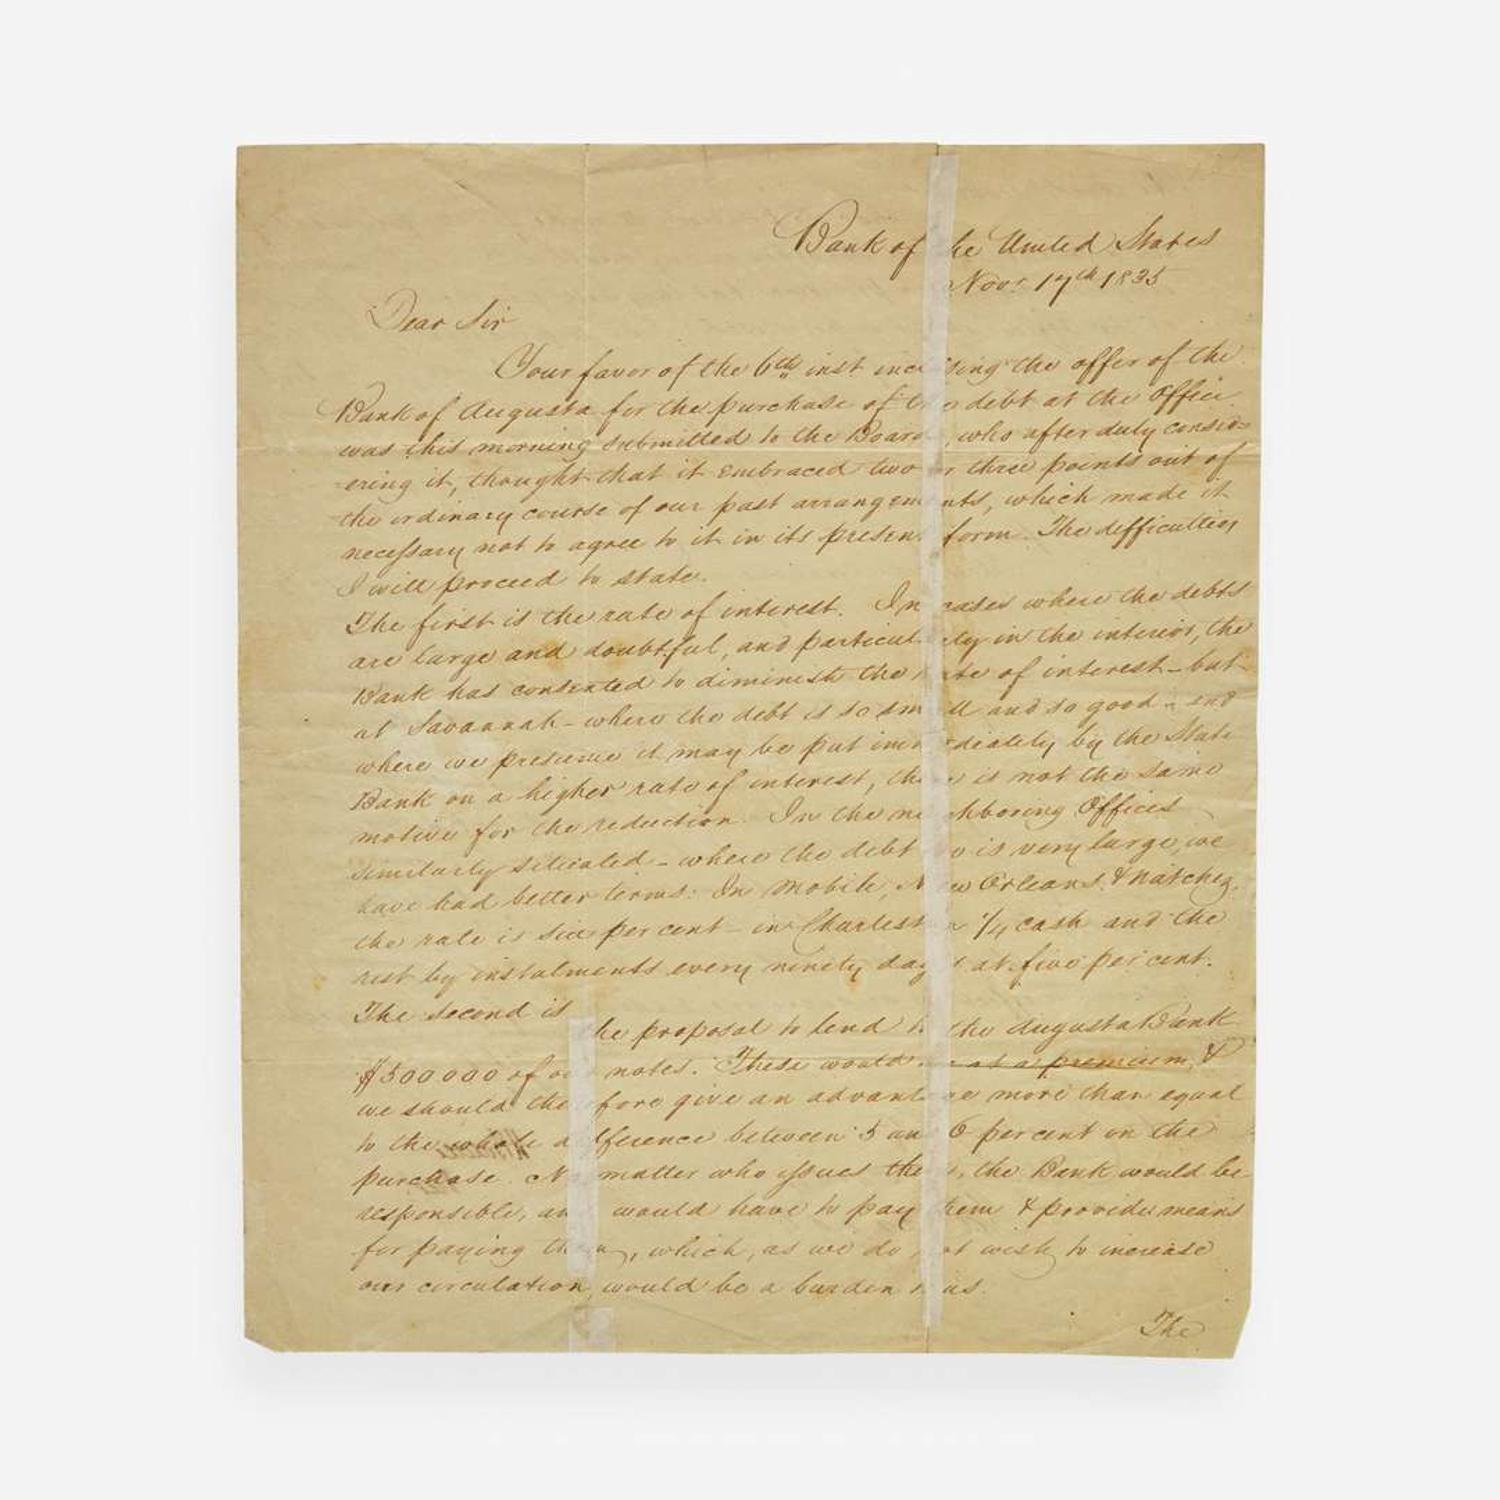 Bank of the United States
Nov: 17th 1835
Dear Sir
Your favor of the 6th inst inclosing the offer of the
Bank of Augusta for the purchase of the debt at the Office
was this morning submitted to the Board, who after duly consid=
=ering it, thought that it embraced two or three points out of
the ordinary course of our past arrangements, which made it
necessary not to agree to it in its present form. The difficulties
I will proceed to state.
The first is the rate of interest. In cases where the debts
are large and doubtful, and particularly in the interior, the
Bank has consented to diminish the rate of interest - but
at Savannah - where the debt is so small and so good - and
where we presume it may be put immediately by the State
Bank on a higher rate of interest, there is not the same
motive for the reduction. In the neighboring Offices
similarly situated - where the debt too is very large, we
have had better terms: In Mobile, New Orleans, & Natchez,
the rate is six per cent - in Charleston 1/4 cash and the
rest by instalments every ninety days at five per cent.
The second is the proposal to lend to the Augusta Bank
$500000 of our notes. These would be at a premium, &
we should therefore give an advantage more than equal
to the whole difference between 5 and 6 per cent on the
purchase. No matter who issues them, the Bank would be
responsible, and would have to pay them & provide means
for paying them, which, as we do not wish to increase
our circulation, would be a burden to us.
The